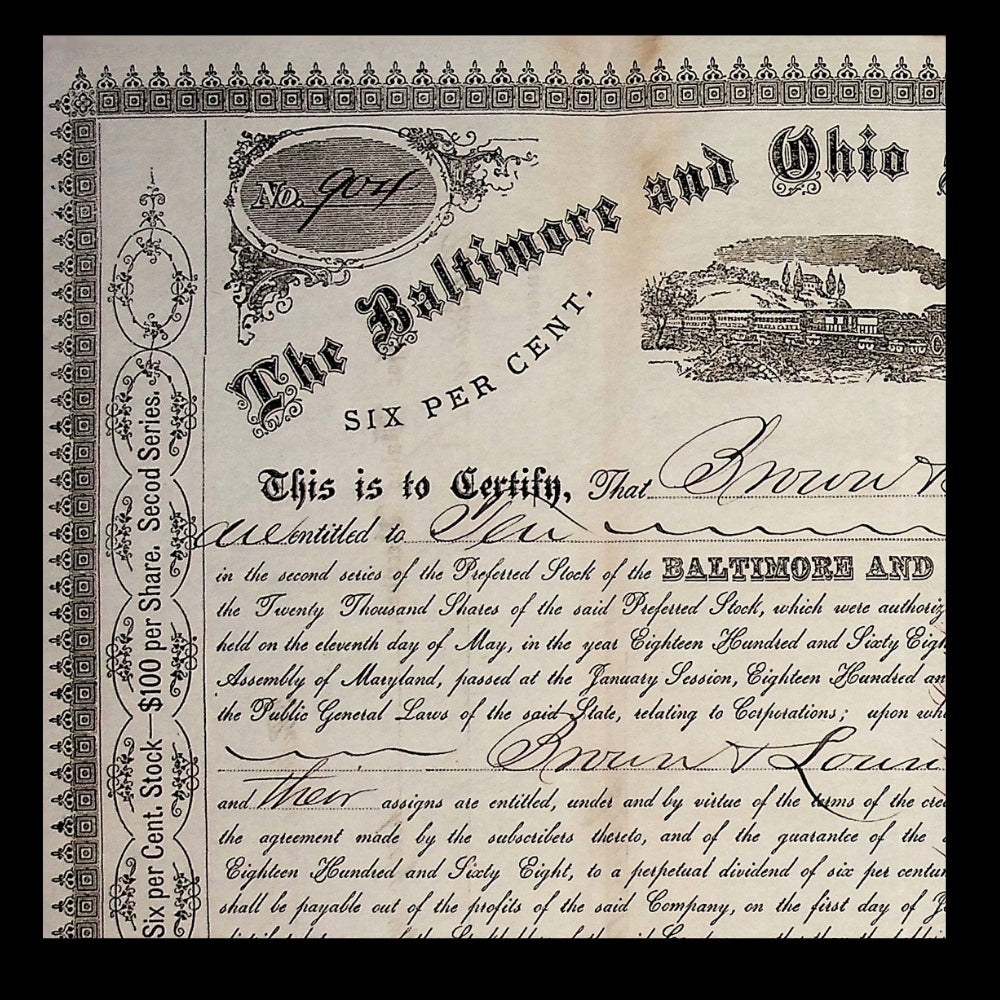 No. 904
The Baltimore and Ohio
SIX PER CENT.
This is to Certify, That Brown &
are entitled to Ten
in the second series of the Preferred Stock of the BALTIMORE AND
the Twenty Thousand Shares of the said Preferred Stock, which were authoriz
held on the eleventh day of May, in the year Eighteen Hundred and Sixty Eigh
Assembly of Maryland, passed at the January Session, Eighteen Hundred an
the Public General Laws of the said State, relating to Corporations; upon whi
Brown &
and their assigns are entitled, under and by virtue of the terms of the
the agreement made by the subscribers thereto, and of the guarantee of the
Eighteen Hundred and Sixty Eight, to a perpetual dividend of six per centum
shall be payable out of the profits of the said Company, on the first day of
Six per Cent. Stock—$100 per Share. Secod Series.